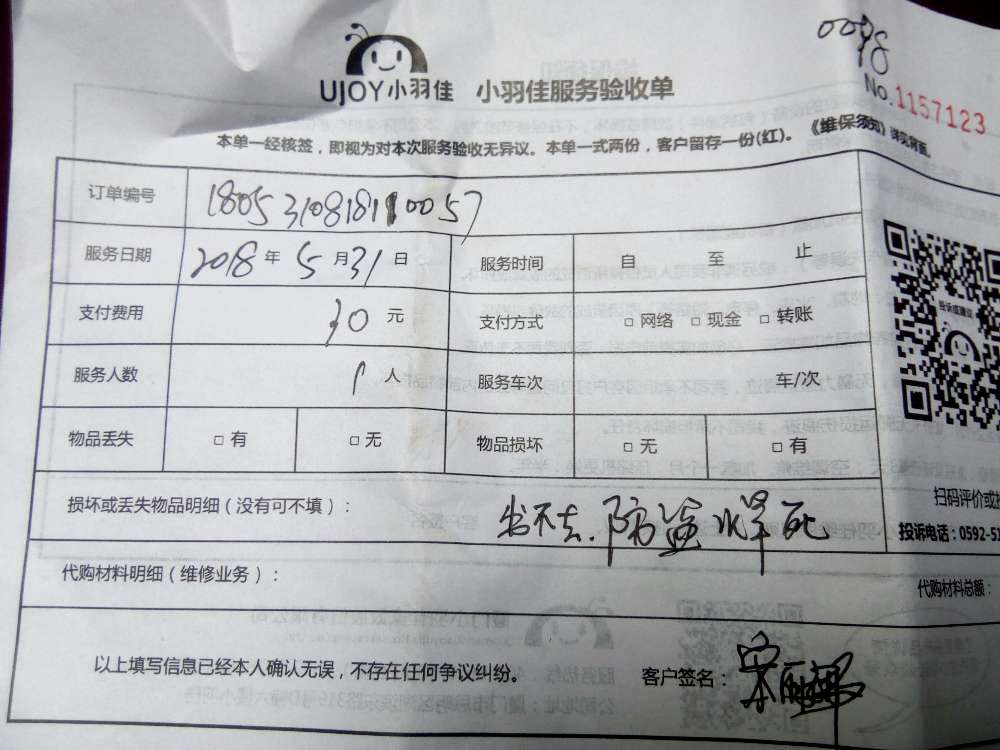 0098
UJOY小羽佳 小羽佳服务验收单
No.1157123
本单一经核签，即视为对本次服务验收无异议。本单一式两份，客户留存一份(红)。《维保须知》详见背面。
订单编号 1805310818110057
服务日期 2018年 5月31日 服务时间 自 至 止
支付费用 30元 支付方式 □网络 □现金 □转账
服务人数 1人 服务车次 车/次
物品丢失 □有 □无 物品损坏 □无 □有
投诉或建议
损坏或丢失物品明细（没有可不填）： 出不去.防盗 焊死
扫码评价或
投诉电话：0592-5
代购材料明细（维修业务）： 代购材料总额：
以上填写信息已经本人确认无误，不存在任何争议纠纷。 客户签名：